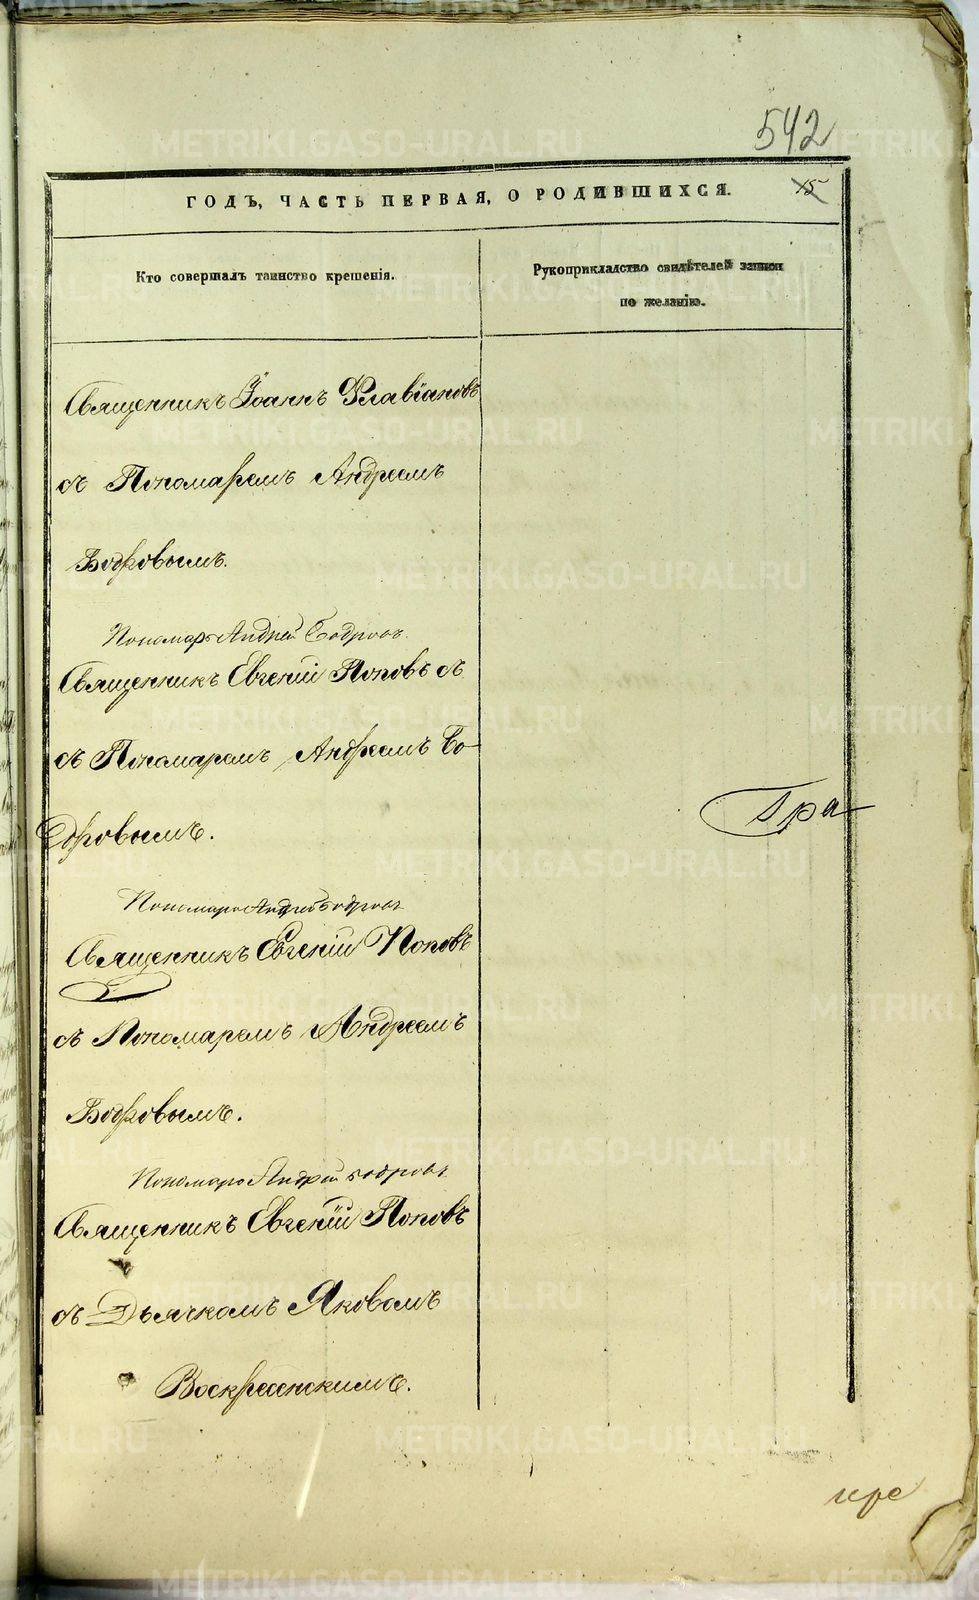 542
ГОДЪ, ЧАСТЬ ПЕРВАЯ, О РОДИВШИХСЯ.
15
Кто совершалъ таинство крещенія.
Рукоприкладство свидѣтелей записи
по желанію.
Священникъ Іоаннъ Флавіановъ
съ Пономаремъ Андреемъ
Бодровымъ.
Пономарь Андрей Бодровъ
Священникъ Евгеній Поповъ съ
съ Пономаремъ Андреемъ Бо-
дровымъ.
Гра
Пономарь Андрей Бодровъ
Священникъ Евгеній Поповъ
съ Пономаремъ Андреемъ
Бодровымъ.
Пономарь Андрей Бодровъ
Священникъ Евгеній Поповъ
съ Дьячкомъ Яковомъ
Воскресенскимъ.
METRIKI.GASO-URAL.RU